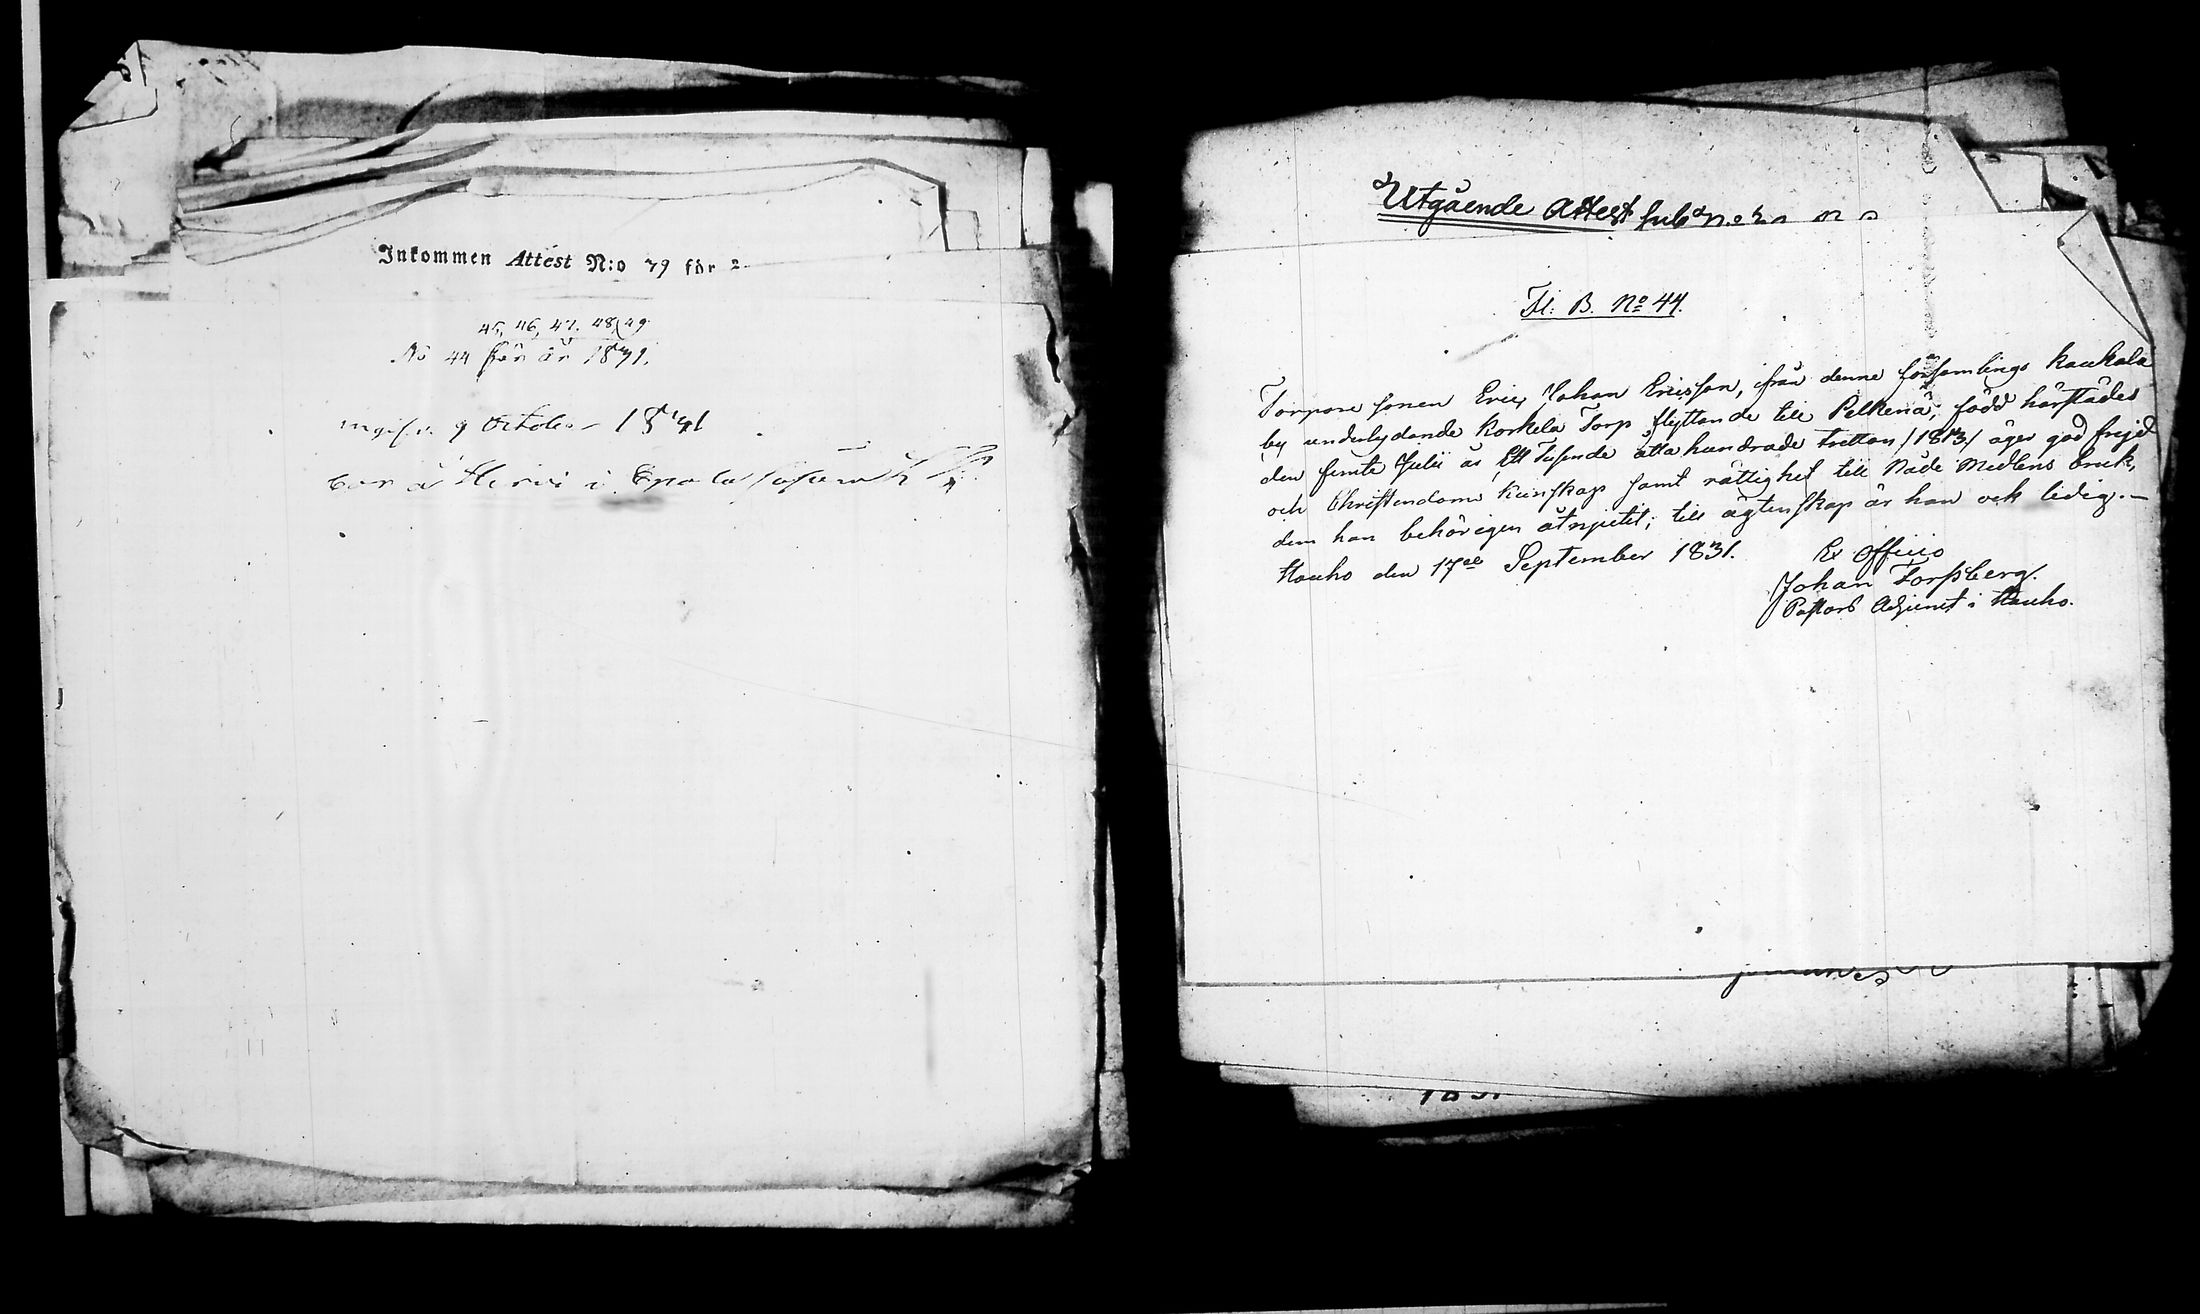 Inkommen Attest N:o 79 för
45, 46, 47, 48, 49
No 44 för år 1831.
9 October 1831
i
Utgående Attest sub N:o
Fl: B. No 44.
Torpare sonen Eric Johan Ericsson, från denne församlings Kaukola
by underlydande Korkela Torp, flyttande till Pelkenä, född härstädes
den femte Julii år Ett Tusende åtta hundrade tretton /1813/ äger god frejd
och Christendoms kunskap samt rättighet till Nåde Medlens bruk,
dem han behörigen åtnjutit; till ägtenskap är han ock ledig.—
Hauho den 17de September 1831.
Ex officio
Johan Forssberg.
Pastors Adjunct i Hauho.